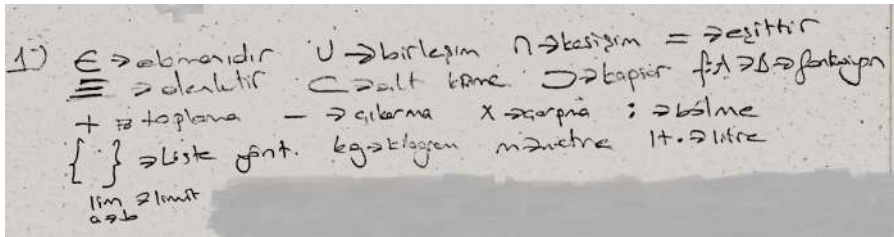 1-) ∈ → elemanıdır ∪ → birleşim ∩ → kesişim = → eşittir
≡ → denktir ⊂ → alt küme ⊃ → kapsar f:A→B → fonksiyon
+ → toplama − → çıkarma x → çarpma : → bölme
{ } → Liste yönt. kg → kilogram m → metre lt. → litre
lim → limit
a→b